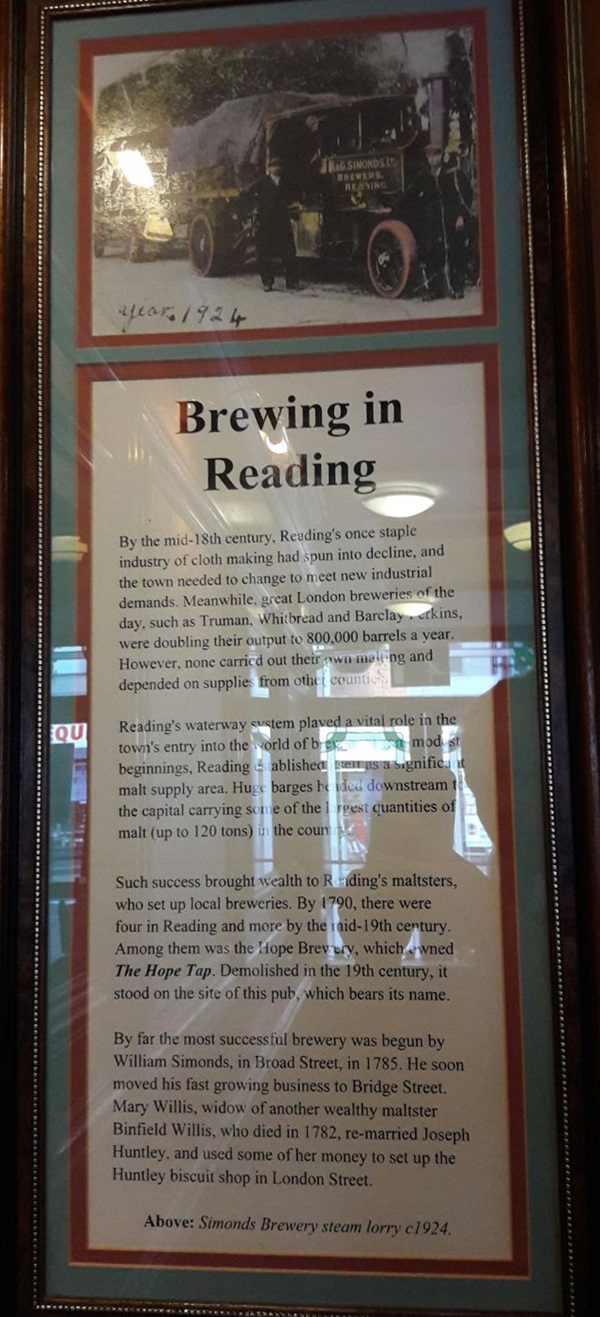 & G. SIMONDS. Ld
BREWERS.
READING
year. 1924
Brewing in
Reading
By the mid-18th century, Reading's once staple
industry of cloth making had spun into decline, and
the town needed to change to meet new industrial
demands. Meanwhile, great London breweries of the
day, such as Truman, Whitbread and Barclay Perkins,
were doubling their output to 800,000 barrels a year.
However, none carried out their own malting and
depended on supplies from other counties.
Reading's waterway system played a vital role in the
town's entry into the world of modest
beginnings, Reading established itself as a significant
malt supply area. Huge barges headed downstream to
the capital carrying some of the largest quantities of
malt (up to 120 tons) in the country.
Such success brought wealth to Reading's maltsters,
who set up local breweries. By 1790, there were
four in Reading and more by the mid-19th century.
Among them was the Hope Brewery, which owned
The Hope Tap. Demolished in the 19th century, it
stood on the site of this pub, which bears its name.
By far the most successful brewery was begun by
William Simonds, in Broad Street, in 1785. He soon
moved his fast growing business to Bridge Street.
Mary Willis, widow of another wealthy maltster
Binfield Willis, who died in 1782, re-married Joseph
Huntley, and used some of her money to set up the
Huntley biscuit shop in London Street.
Above: Simonds Brewery steam lorry c1924.